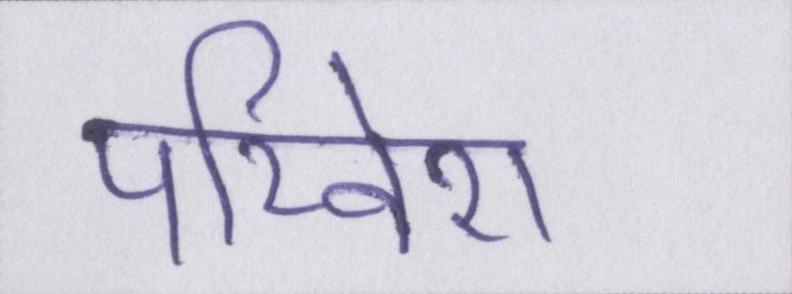 परिवेश